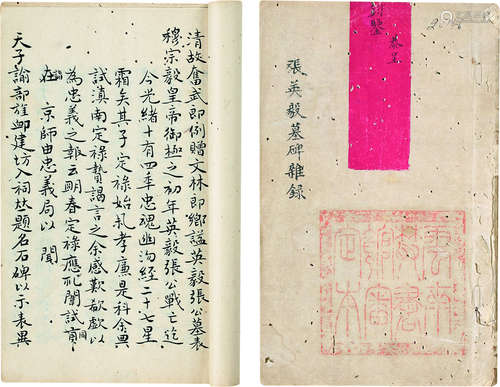 張英毅墓碑雜錄
雲南
定本
清故奮武郎例贈文林郎鄉謚英毅張公墓表
穆宗毅皇帝御極之初年英毅張公戰亡迄
今光緒十有四季忠魂幽沕經二十七星
霜矣其子定祿始孝廉是科余典
試滇南定祿贄謁言之余感歎歔欷以
為忠義之報云朙春定祿應礼闈試
在 京師由忠義局以 聞
天子諭部旌卹建坊入祠題名石碑以示表異